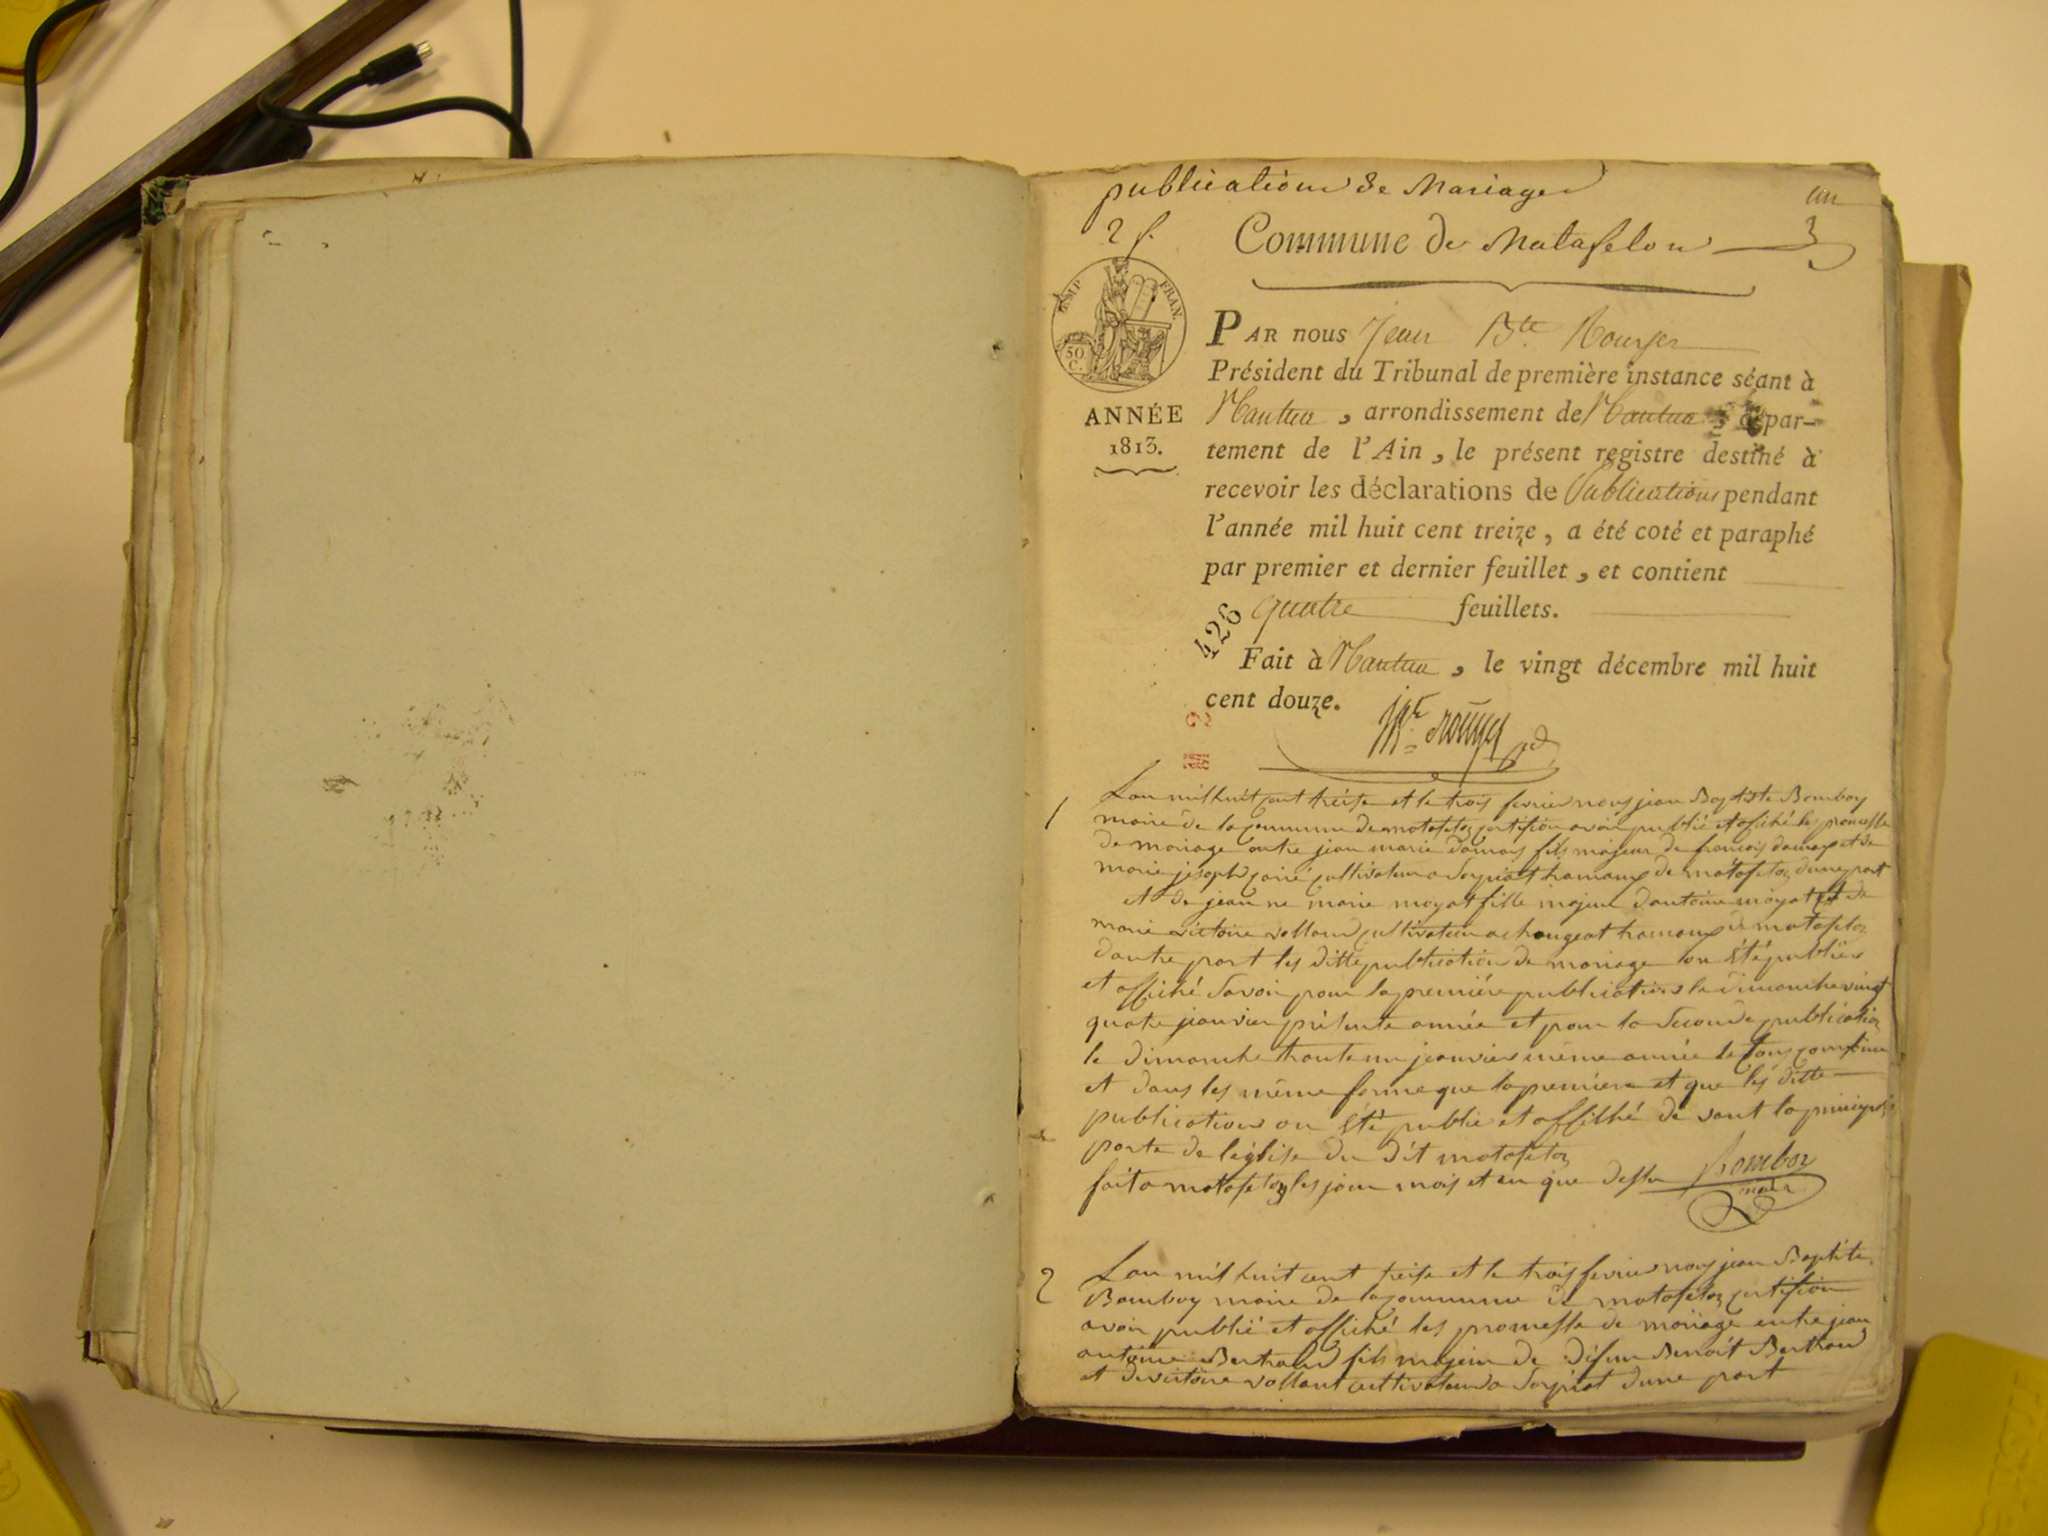 publication de Mariage
un
2 f.
Commune de Matafelon
3
EMP FRAN.
50 C.
ANNÉE
1813.
PAR nous Jean Bte. Rouyer
Président du Tribunal de première instance séant à
Nantua, arrondissement de Nantua, dépar-
tement de l'Ain, le présent registre destiné à
recevoir les déclarations de Publications pendant
l'année mil huit cent treize, a été coté et paraphé
par premier et dernier feuillet, et contient
quatre feuillets.
426
Fait à Nantua, le vingt décembre mil huit
cent douze.
1
Lan mil huit cent treise et le trois fevrier nous jean Baptiste Bomboy
maire de la commune de matafelon certifion avoir publié et afiché les promesse
de mariage entre jean marie damas fils majeur de francois damas et de
marie joseph cultivateur a Sorpiat hamaux de matafelon dune part
et de jean ne marie moyat fille majeur dantoine moyat et de
marie victoire vollant cultivateur a chougeat hamaux de matafelon
dautre part les ditte publication de mariage on été publier
et affiché Savoir pour la première publication le dimanche vingt
quatre jeanvier présente année et pour la Seconde publication
le dimanche trante un jeanvier même année
et dans les même forme que la premiere et que les ditte
publication on été publié et affiché de vant la principal
porte de léglise du dit matafelon
fait a matafelon les jour mois et an que dessu Bomboy
maire
2
Lan mil huit cent treise et le trois fevrier nous jean Baptiste
Bomboy maire de la commune de matafelon certifion
avoir publié et affiché les promesse de mariage entre jean
antoine Bertrand fils majeur de défun Benoit Berthand
et de victoire vollant cultivateur a Sorpiat dune part